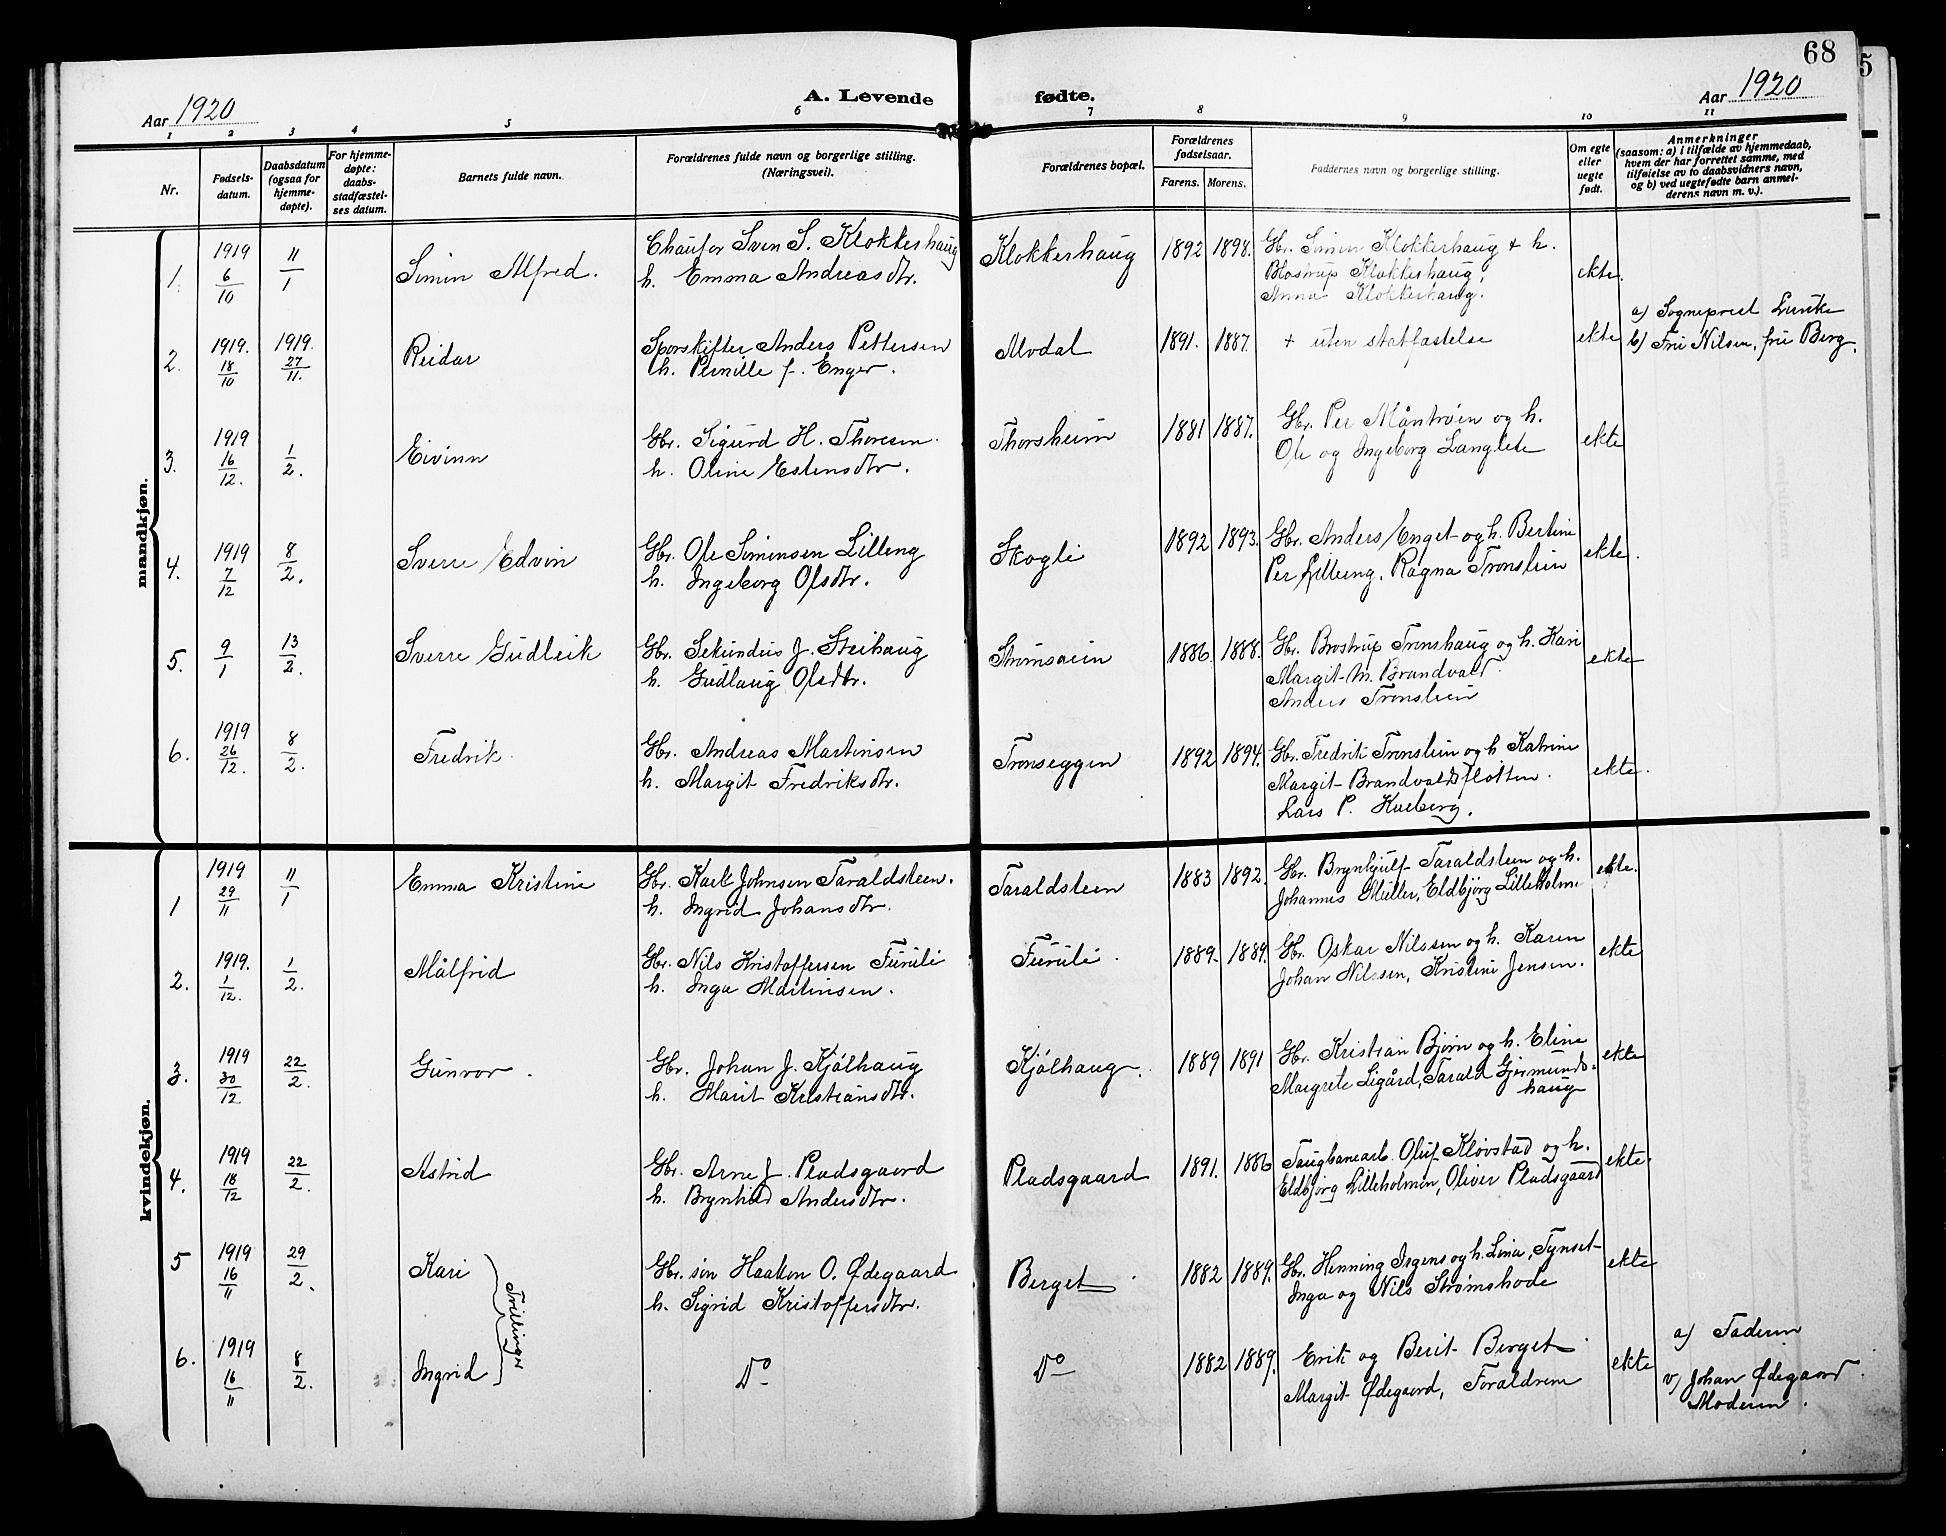 68
5
Aar 1920
A. Levende fødte.
Aar 1920
1 2 3 4 5 6 7 8 9 10 11
Nr.
Fødsels-
datum.
Daabsdatum
(ogsaa for
hjemme-
døpte).
For hjemme-
døpte:
daabs-
stadfæstel-
ses datum.
Barnets fulde navn.
Forældrenes fulde navn og borgerlige stilling.
(Næringsvei).
Forældrenes bopæl.
Forældrenes
fødselsaar.
Farens. Morens.
Faddernes navn og borgerlige stilling.
Om egte
eller
uegte
født.
Anmerkninger
(saasom: a) i tilfælde av hjemmedaab,
hvem der har forrettet samme, med
tilføielse av to daabsvidners navn,
og b) ved uegtefødte barn anmel-
derens navn m. v.).
mandkjøn.
1. 1919 6/10 11/1 Simen Alfred. Chaufør Sven S. Klokkerhaug
h. Emma Andreasdtr. Klokkerhaug 1892 1898. Gbr. Simen Klokkerhaug + h.
Brostrup Klokkerhaug,
Anna Klokkerhaug. ekte.
2. 1919. 18/10 1919. 27/11. Reidar Sporskifter Anders Pettersen
h. Pernille f. Enger. Alvdal 1891. 1887. + uten statfæstelse ekte
a) Sogneprest
b) Fru Nilsen, fru Berg.
3. 1919 16/12. 1/2. Eivinn Gbr. Sigurd H. Thoresen
h. Oline Estensdtr. Thorsheim 1881 1887. Gbr. Per Måntrøen og h.
Ole og Ingeborg Langlete ekte
4. 1919 7/12 8/2. Sverre Edvin Gbr. Ole Simensen Lilleng
h. Ingeborg Olsdtr. Skogli 1892 1893. Gbr. Anders Enget og h. Bertine
Per Lilleeng, Ragna Tronslien ekte.
5. 9/1 13/2. Sverre Gudleik Gbr. Sekundus J. Steihaug
h. Gudlaug Olsdtr. Strømsøien 1886. 1888. Gbr. Brostrup Tronshaug og h. Kari
Margit M. Brandvald
Anders Tronslien ekte
6. 1919 26/12. 8/2. Fredrik. Gbr. Andreas Martinsen
h. Margit Fredriksdtr. Tronseggen 1892 1894. Gbr. Fredrik Tronslien og h Katrine
Margit Brandvaldsflotten.
Lars P. Kveberg. ekte.
kvindekjøn.
1 1919 29/11 11/1 Emma Kristine Gbr. Karl Johnsen Taraldsteen.
h. Ingrid Johansdtr. Taraldsteen 1883 1892. Gbr. Brynhjulf Taraldsteen og h.
Johannes Müller, Eldbjörg Lilleholme ekte.
2. 1919. 1/12. 1/2. Målfrid Gbr. Nils Kristoffersen Furuli
h. Inga Martinsen. Furuli. 1889. 1889. Gbr. Oskar Nilssen og h. Karen
Johan Nilssen, Kristine Jensen. ekte
3. 1919 30/12 22/2. Gunvor. Gbr. Johan J. Kjølhaug
h. Marit Kristiansdtr. Kjølhaug. 1889 1891 Gbr. Kristian Bjørn og h. Eline
Margrete Ligård, Tarald Gjermunds-
haug ekte
4. 1919 18/12 22/2. Astrid Gbr. Arne J. Pladsgaard
h. Brynhild Andersdtr. Pladsgaard 1891. 1886 Taugbanearb. Oluf Kløvstad og h.
Eldbjørg Lilleholmen, Oliver Pladsgaard ekte.
5 1919 16/11 29/2. Kari Gbr. søn Haakon O. Ødegaard
h. Sigrid Kristoffersdtr. Berget. 1882 1889. Gbr. Henning Irgens og h. Lina, Tynset
Inga og Nils Strømshode ekte
Trillinger
6. 1919 16/11 8/2. Ingrid Do Do 1882 1889. Erik og Berit Berget.
Margit Ødegaard, Foraldrene ekte
a) Faderen
v) Johan Ødegaard.
Moderen.